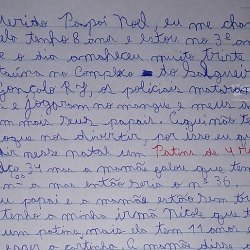 uerido Papai Noel, eu me cha
elo tenho 8 anos e estou no 3º an
e o dia amanheceu muito triste
no Complexo do Salguei
onçalo RJ, os policiais mataram
e jogaram no mangue e meus am
m mais seus papais. Aqui não te
para nos divertir, por isso eu qu
dir nesse natal um Patins de 4 ro
34 mas a mamãe falou que tem
nº a mas então seria o nº 36.
eu papai e a mamãe estão sem tra
tenho a minha irmã que
um patins, mais ela tem 11 anos
a cartinha. A mamãe disse